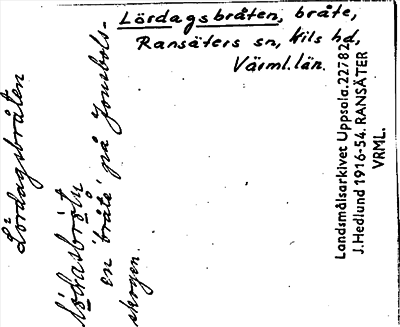 Lördagsbråten, bråte,
Ransäters sn, Kils hd,
Värml. län.
Lördagsbråten
en 'bråte' på Jonsbols-
skogen.
Landsmålsarkivet Uppsala. 22782
J. Hedlund 1916-54. RANSÄTER
VRML.